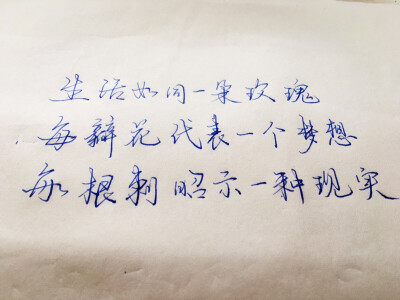 生活如同一朵玫瑰
每瓣花代表一个梦想
每根刺昭示一种现实